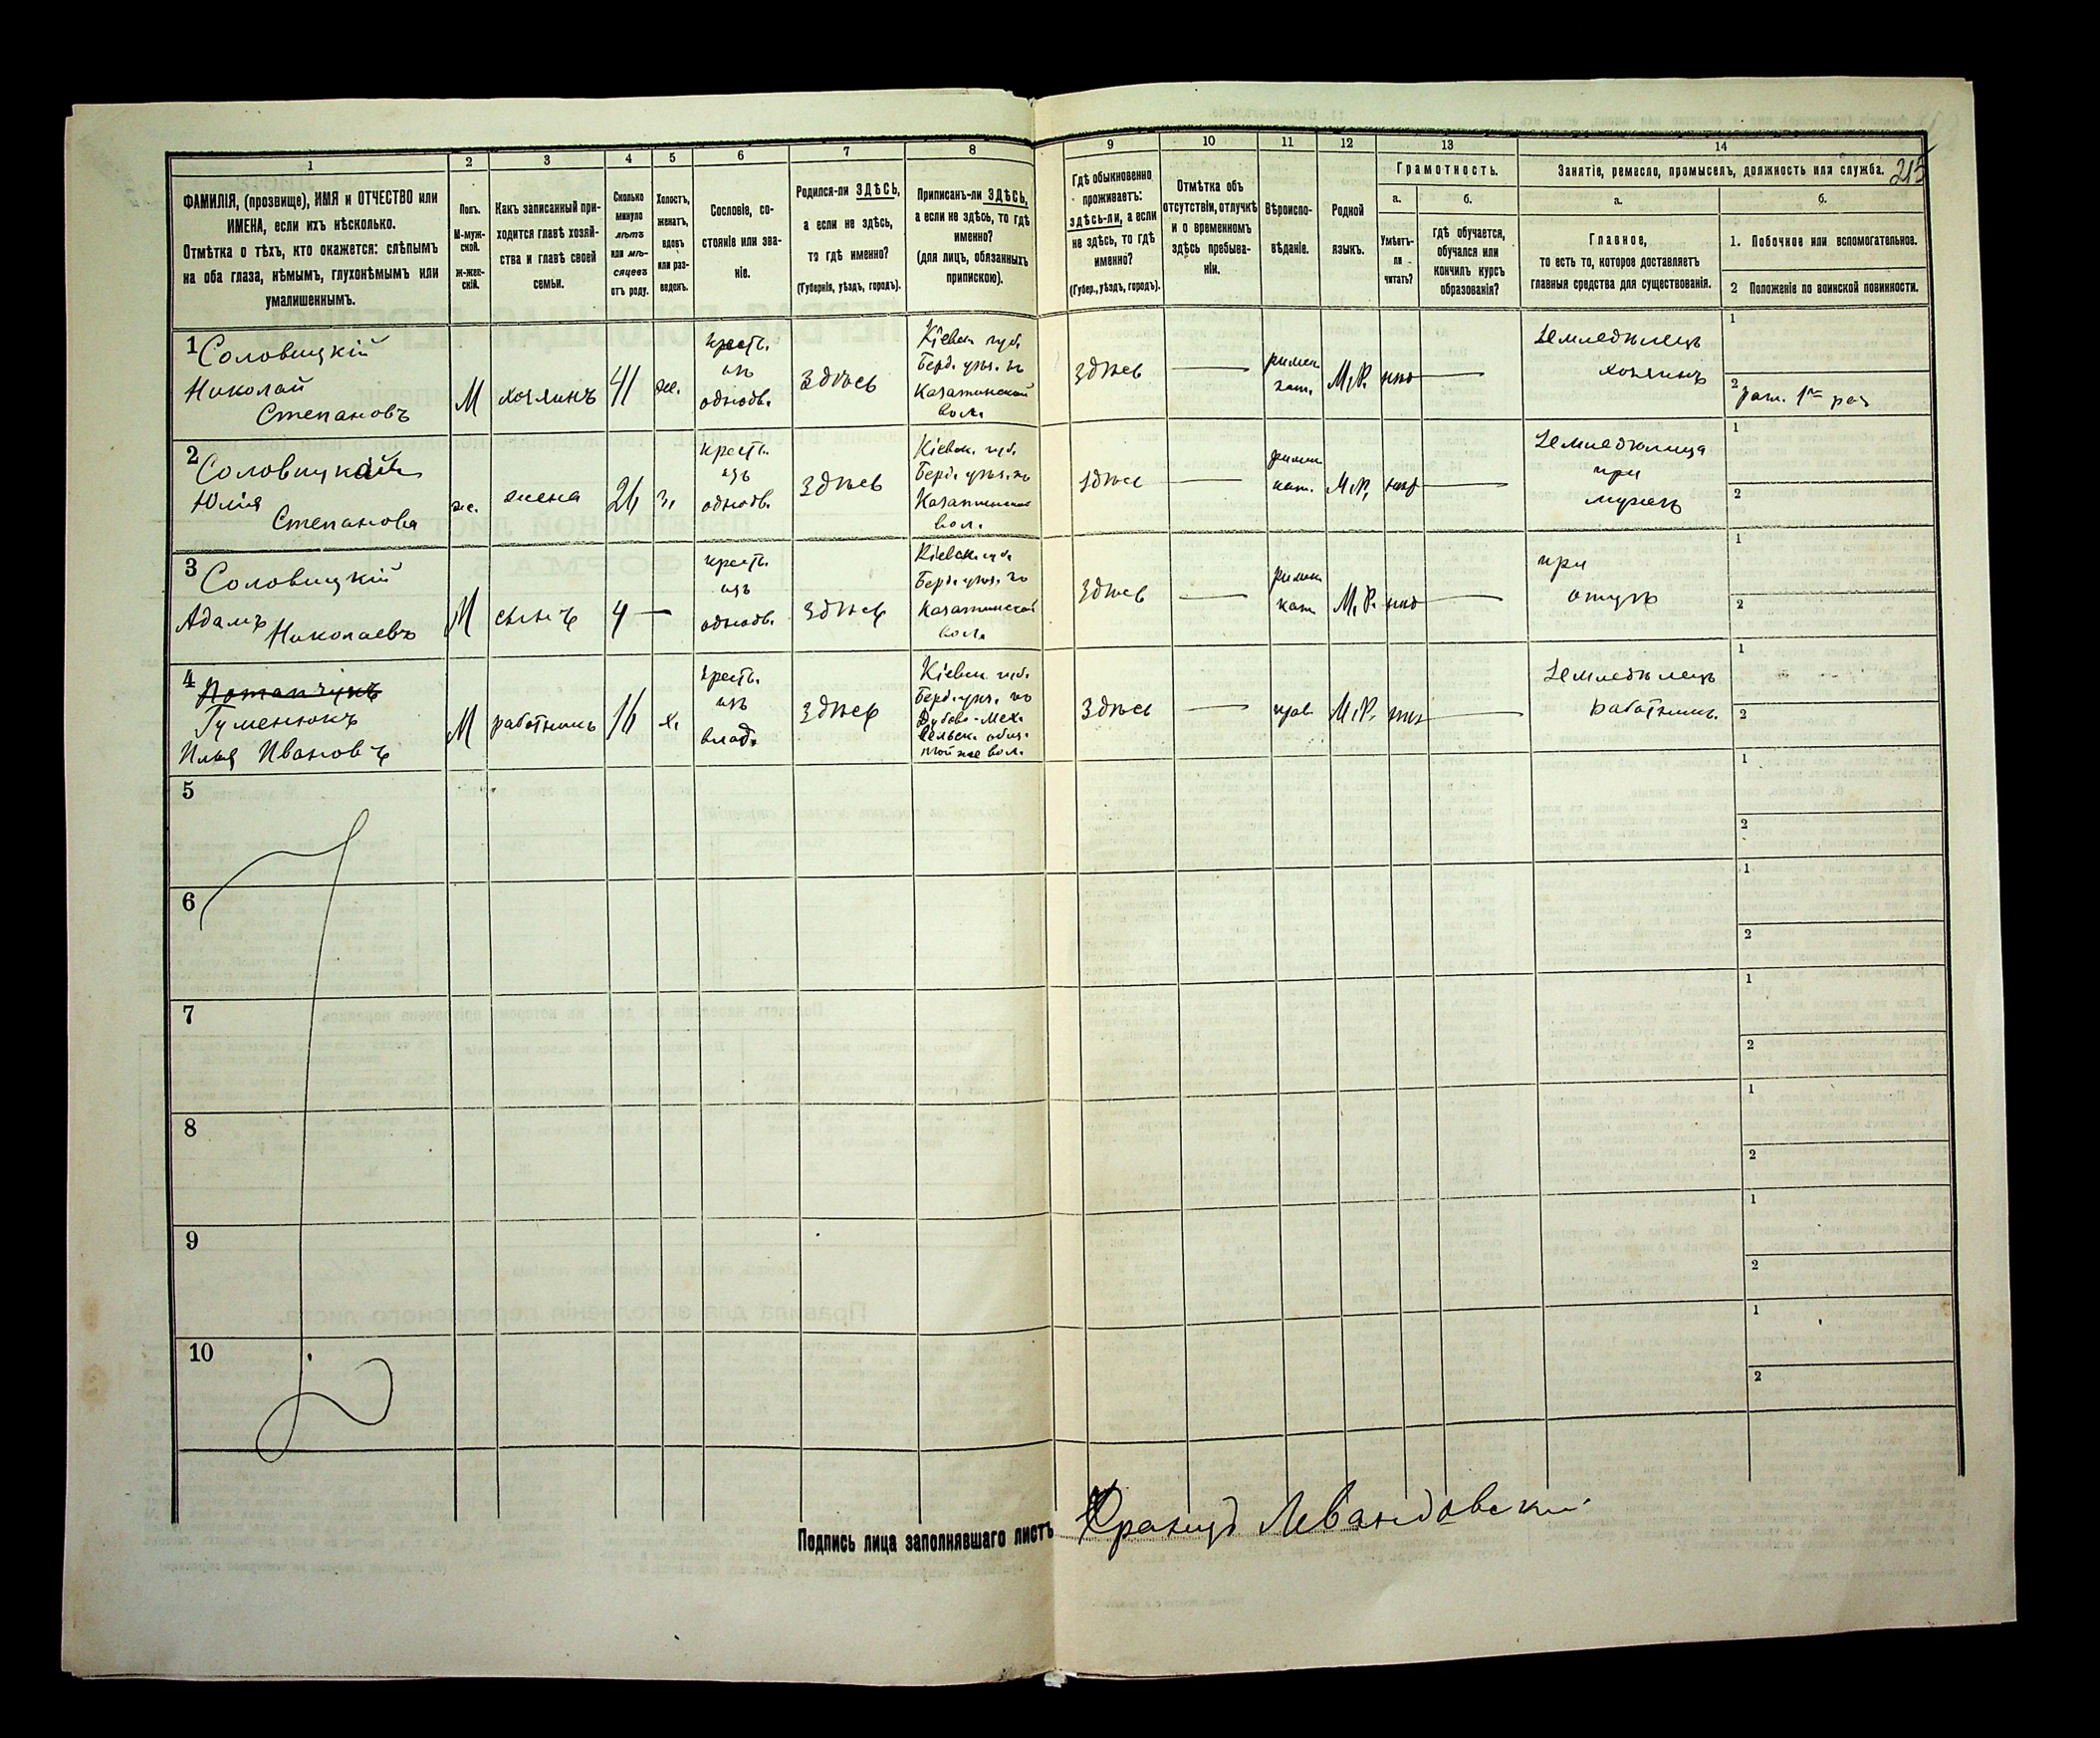 1 2 3 4 5 6 7 8 9 10 11 12 13 14
215
ФАМИЛІЯ, (прозвище), ИМЯ и ОТЧЕСТВО или
ИМЕНА, если ихъ нѣсколько.
Отмѣтка о тѣхъ, кто окажется: слѣпымъ
на оба глаза, нѣмымъ, глухонѣмымъ или
умалишеннымъ.
Полъ.
М-муж-
ской.
Ж-жен-
скій.
Какъ записанный при-
ходится главѣ хозяй-
ства и главѣ своей
семьи.
Сколько
минуло
лѣтъ
или мѣ-
сяцевъ
отъ роду.
Холостъ,
женатъ,
вдовъ
или раз-
веденъ.
Сословіе, со-
стояніе или зва-
ніе.
Родился-ли ЗДѢСЬ,
а если не здѣсь,
то гдѣ именно?
(Губернія, уѣздъ, городъ).
Приписанъ-ли ЗДѢСЬ,
а если не здѣсь, то гдѣ
именно?
(для лицъ, обязанныхъ
припискою).
Гдѣ обыкновенно
проживаетъ:
здѣсь-ли, а если
не здѣсь, то гдѣ
именно?
(Губер., уѣздъ, городъ).
Отмѣтка объ
отсутствіи, отлучкѣ
и о временномъ
здѣсь пребыва-
ніи.
Вѣроиспо-
вѣданіе.
Родной
языкъ.
Грамотность.
а.
Умѣетъ-
ли
читать?
б.
гдѣ обучается,
обучался или
кончилъ курсъ
образованія?
Занятіе, ремесло, промыселъ, должность или служба.
а.
Главное,
то есть то, которое доставляетъ
главныя средства для существованія.
б.
1. Побочное или вспомогательное.
2 Положеніе по воинской повинности.
1 Соловицкій
Николай
Степановъ
М
хозяинъ
41
ж.
крест.
изъ
однодв.
здѣсь
Кіевск. губ.
Берд. уѣз.
Казатинской
вол.
здѣсь
римск.
кат.
М.Р.
нѣт
Земледѣлецъ
хозяинъ
1
2
2 Соловицкая
Юлія
Степанова
ж.
жена
26
з.
крест.
изъ
однодв.
здѣсь
Кіевск. губ.
Берд. уѣз.
Казатинской
вол.
здѣсь
римск.
кат.
М.Р.
нѣт
Земледѣлица
при
мужѣ
1
2
3 Соловицкій
Адамъ
Николаевъ
М
сынъ
4
крест.
изъ
однодв.
здѣсь
Кіевск. губ.
Берд. уѣз.
Казатинской
вол.
здѣсь
римск.
кат.
М.Р.
нѣт
при
отцѣ
1
2
4
Гуменюкъ
Илья Ивановъ
М
работникъ
16
х.
крест.
изъ
влад.
здѣсь
Кіевск. губ.
Берд. уѣз.
той же вол.
здѣсь
прав.
М.Р.
нѣт
Земледѣлецъ
работникъ.
1
2
5
1
2
6
1
2
7
1
2
8
1
2
9
1
2
10
1
2
Подпись лица заполнявшаго листъ Францъ Левандовскій